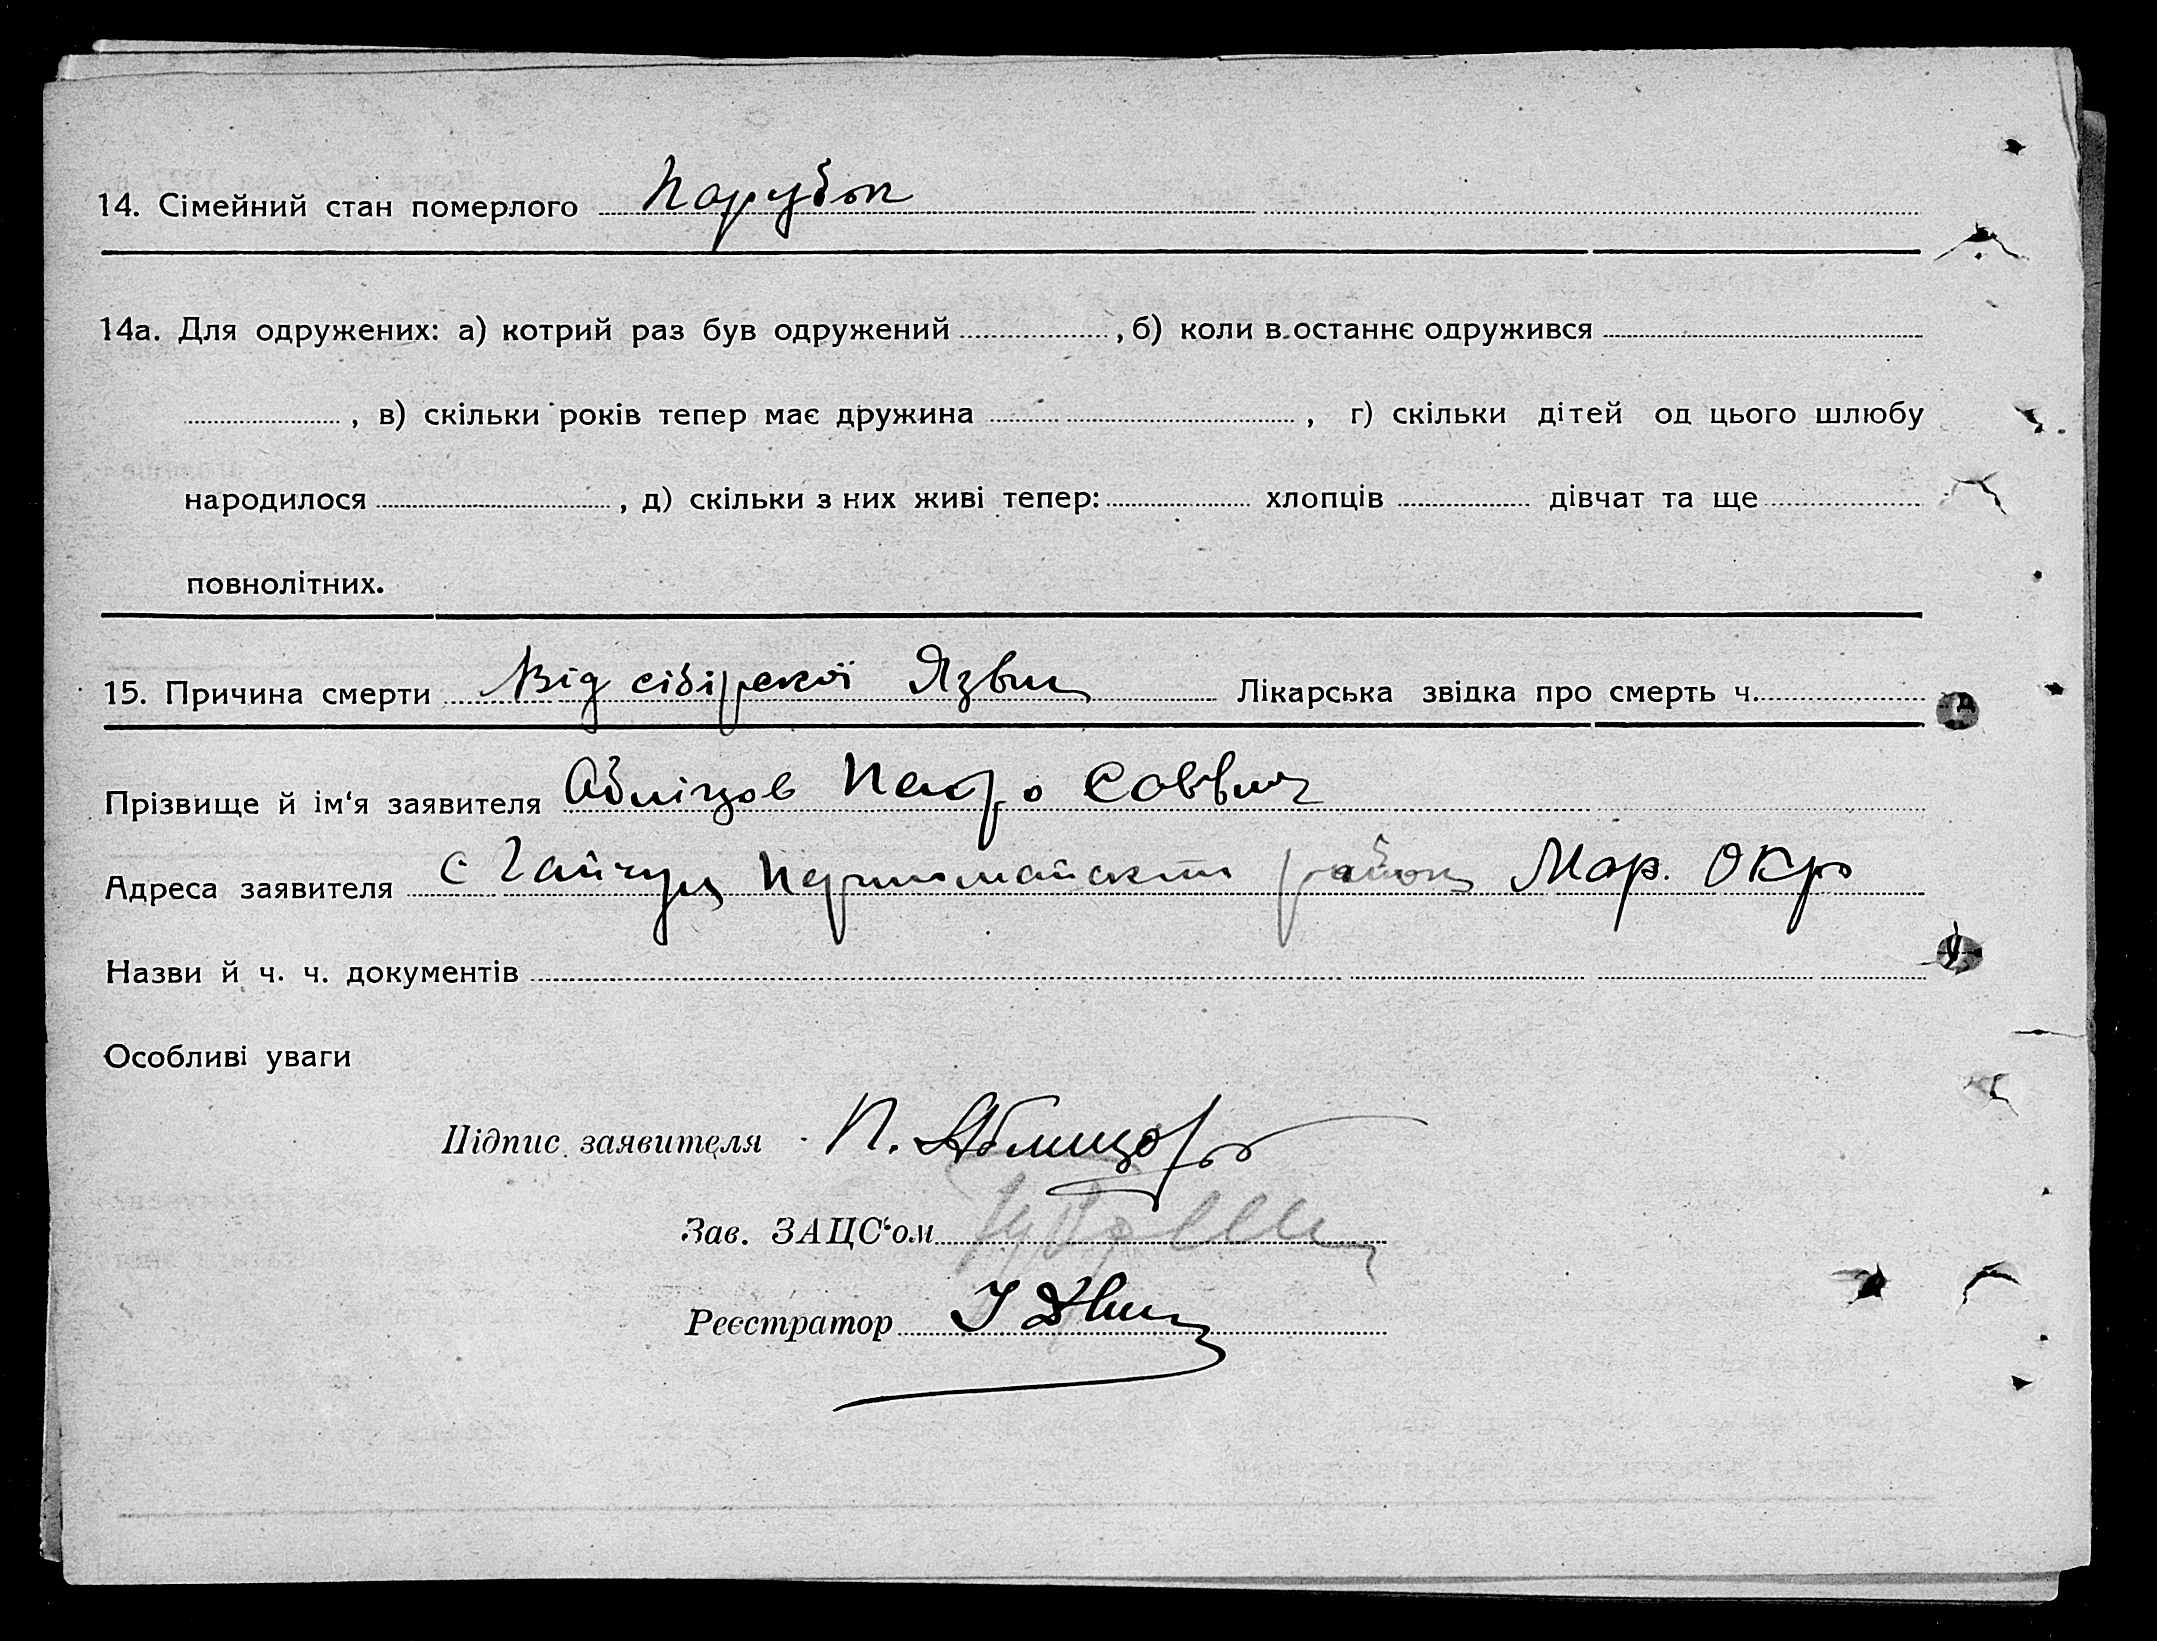 14. Сімейний стан померлого Парубок
14а. Для одружених: а) котрий раз був одружений , б) коли в останнє одружився
, в) скільки років тепер має дружина , г) скільки дітей од цього шлюбу
народилося , д) скільки з них живі тепер: хлопців дівчат та ще
повнолітних.
15. Причина смерти Від сібірскої Язви Лікарська звідка про смерть ч.
Прізвище й ім'я заявителя Абліцов Петро Саввич
Адреса заявителя с Гайчул Першомайского району Мар. Окр
Назви й ч. ч. документів
Особливі уваги
Підпис заявителя П. Аблицов
Зав. ЗАЦС'ом
Реєстратор